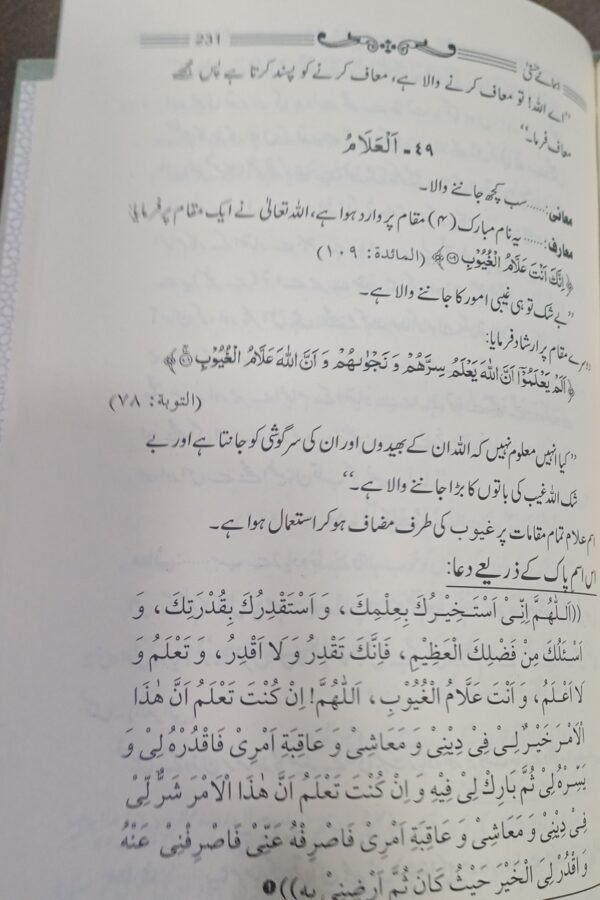 اسمائے حسنیٰ 231
”اے اللہ! تو معاف کرنے والا ہے، معاف کرنے کو پسند کرتا ہے پس مجھے
معاف فرما۔“
۴۹۔ اَلْعَلَّامُ
معانی:...... سب کچھ جاننے والا۔
معارف:...... یہ نام مبارک (۴) مقام پر وارد ہوا ہے، اللہ تعالیٰ نے ایک مقام پر فرمایا
﴿اِنَّكَ اَنْتَ عَلَّامُ الْغُيُوْبِ ۱۰۹﴾ (المائدة: ۱۰۹)
”بے شک تو ہی غیبی امور کا جاننے والا ہے۔
دوسرے مقام پر ارشاد فرمایا:
﴿اَلَمْ يَعْلَمُوْٓا اَنَّ اللّٰهَ يَعْلَمُ سِرَّهُمْ وَ نَجْوٰىهُمْ وَ اَنَّ اللّٰهَ عَلَّامُ الْغُيُوْبِ ۷۸﴾
(التوبة: ۷۸)
”کیا انہیں معلوم نہیں کہ اللہ ان کے بھیدوں اور ان کی سرگوشی کو جانتا ہے اور بے
شک اللہ غیب کی باتوں کا بڑا جاننے والا ہے۔“
اسم علام تمام مقامات پر غیوب کی طرف مضاف ہو کر استعمال ہوا ہے۔
اس اسم پاک کے ذریعے دعا:
((اَللّٰهُمَّ اِنِّىْ اَسْتَخِيْرُكَ بِعِلْمِكَ، وَ اَسْتَقْدِرُكَ بِقُدْرَتِكَ، وَ
اَسْئَلُكَ مِنْ فَضْلِكَ الْعَظِيْمِ، فَاِنَّكَ تَقْدِرُ وَ لَا اَقْدِرُ، وَ تَعْلَمُ وَ
لَا اَعْلَمُ، وَ اَنْتَ عَلَّامُ الْغُيُوْبِ، اَللّٰهُمَّ! اِنْ كُنْتَ تَعْلَمُ اَنَّ هٰذَا
الْاَمْرَ خَيْرٌ لِىْ فِىْ دِيْنِىْ وَ مَعَاشِىْ وَ عَاقِبَةِ اَمْرِىْ فَاقْدُرْهُ لِىْ وَ
يَسِّرْهُ لِىْ ثُمَّ بَارِكْ لِىْ فِيْهِ وَ اِنْ كُنْتَ تَعْلَمُ اَنَّ هٰذَا الْاَمْرَ شَرٌّ لِّىْ
فِىْ دِيْنِىْ وَ مَعَاشِىْ وَ عَاقِبَةِ اَمْرِىْ فَاصْرِفْهُ عَنِّىْ فَاصْرِفْنِىْ عَنْهُ
وَ اقْدُرْ لِىَ الْخَيْرَ حَيْثُ كَانَ ثُمَّ اَرْضِنِىْ بِهٖ)) ❶